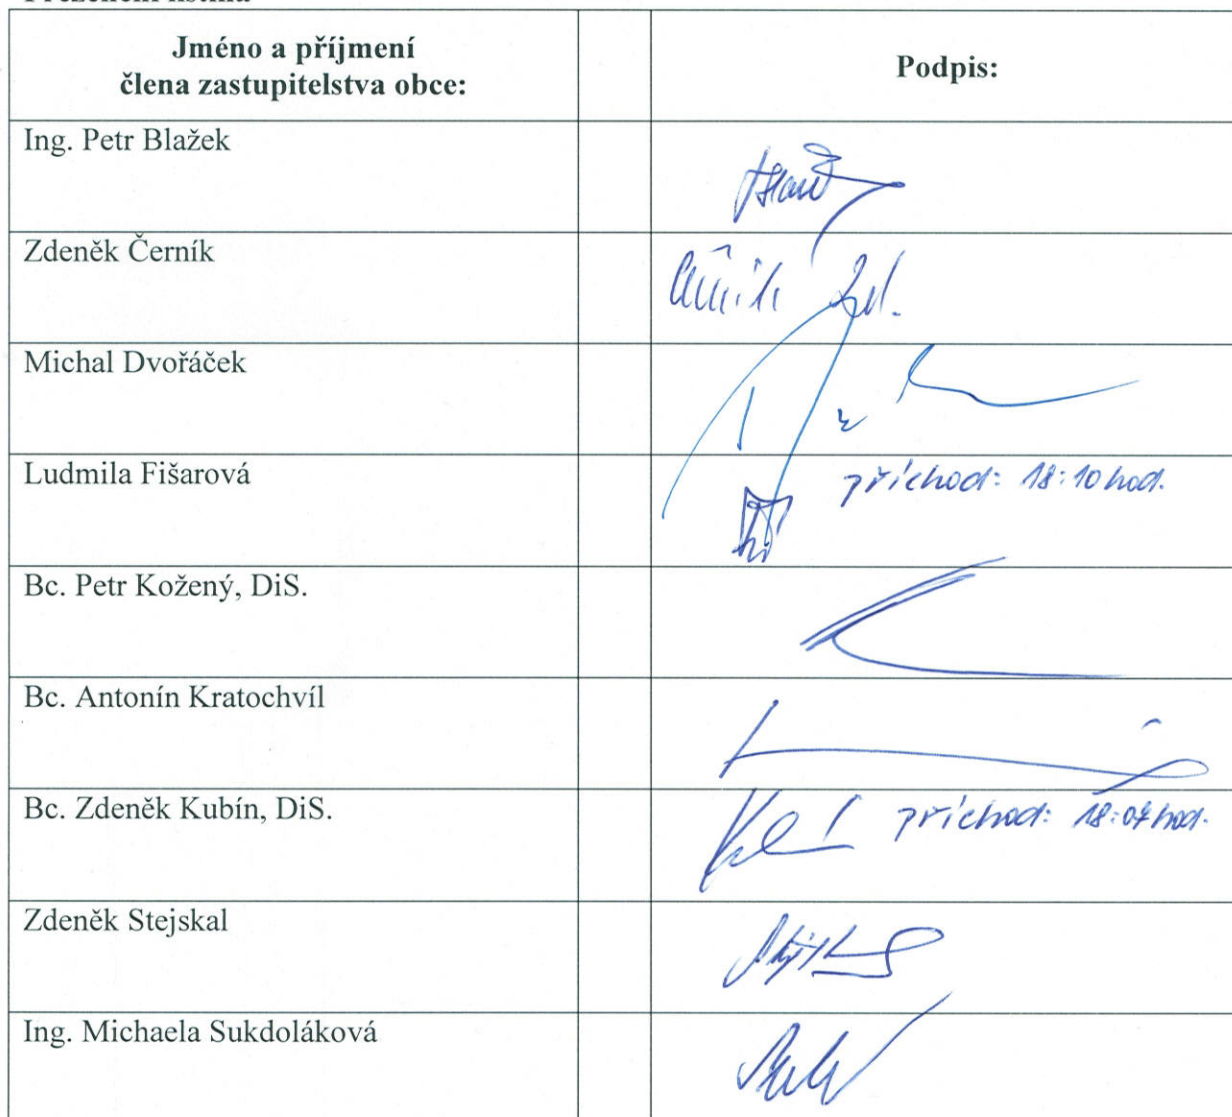 Jméno a příjmení
člena zastupitelstva obce:
Podpis:
Ing. Petr Blažek
Zdeněk Černík
Michal Dvořáček
Ludmila Fišarová
příchod: 18:10 hod.
Bc. Petr Kožený, DiS.
Bc. Antonín Kratochvíl
Bc. Zdeněk Kubín, DiS.
příchod: 18:07 hod.
Zdeněk Stejskal
Ing. Michaela Sukdoláková